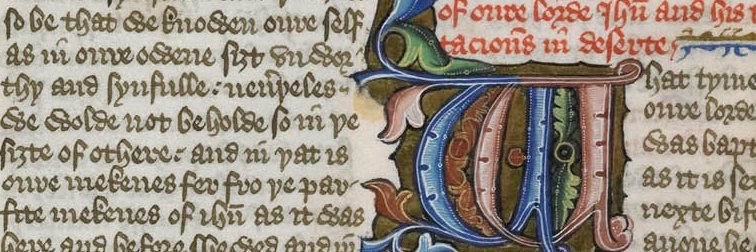 so be that we knowen oure self
as in oure owene siʒt vnwor
thy and synfulle: neuþeles
we wolde not be holde so in þe
siʒte of othere: and in þat is
oure mekenes fer fro þe par
fite mekenes of ihū as it was
here and before shewed and in
of oure lorde Ihū and his
tacioūs in deserte;
What tyme
oure lorde
was bapt
as it is se
nexte bi